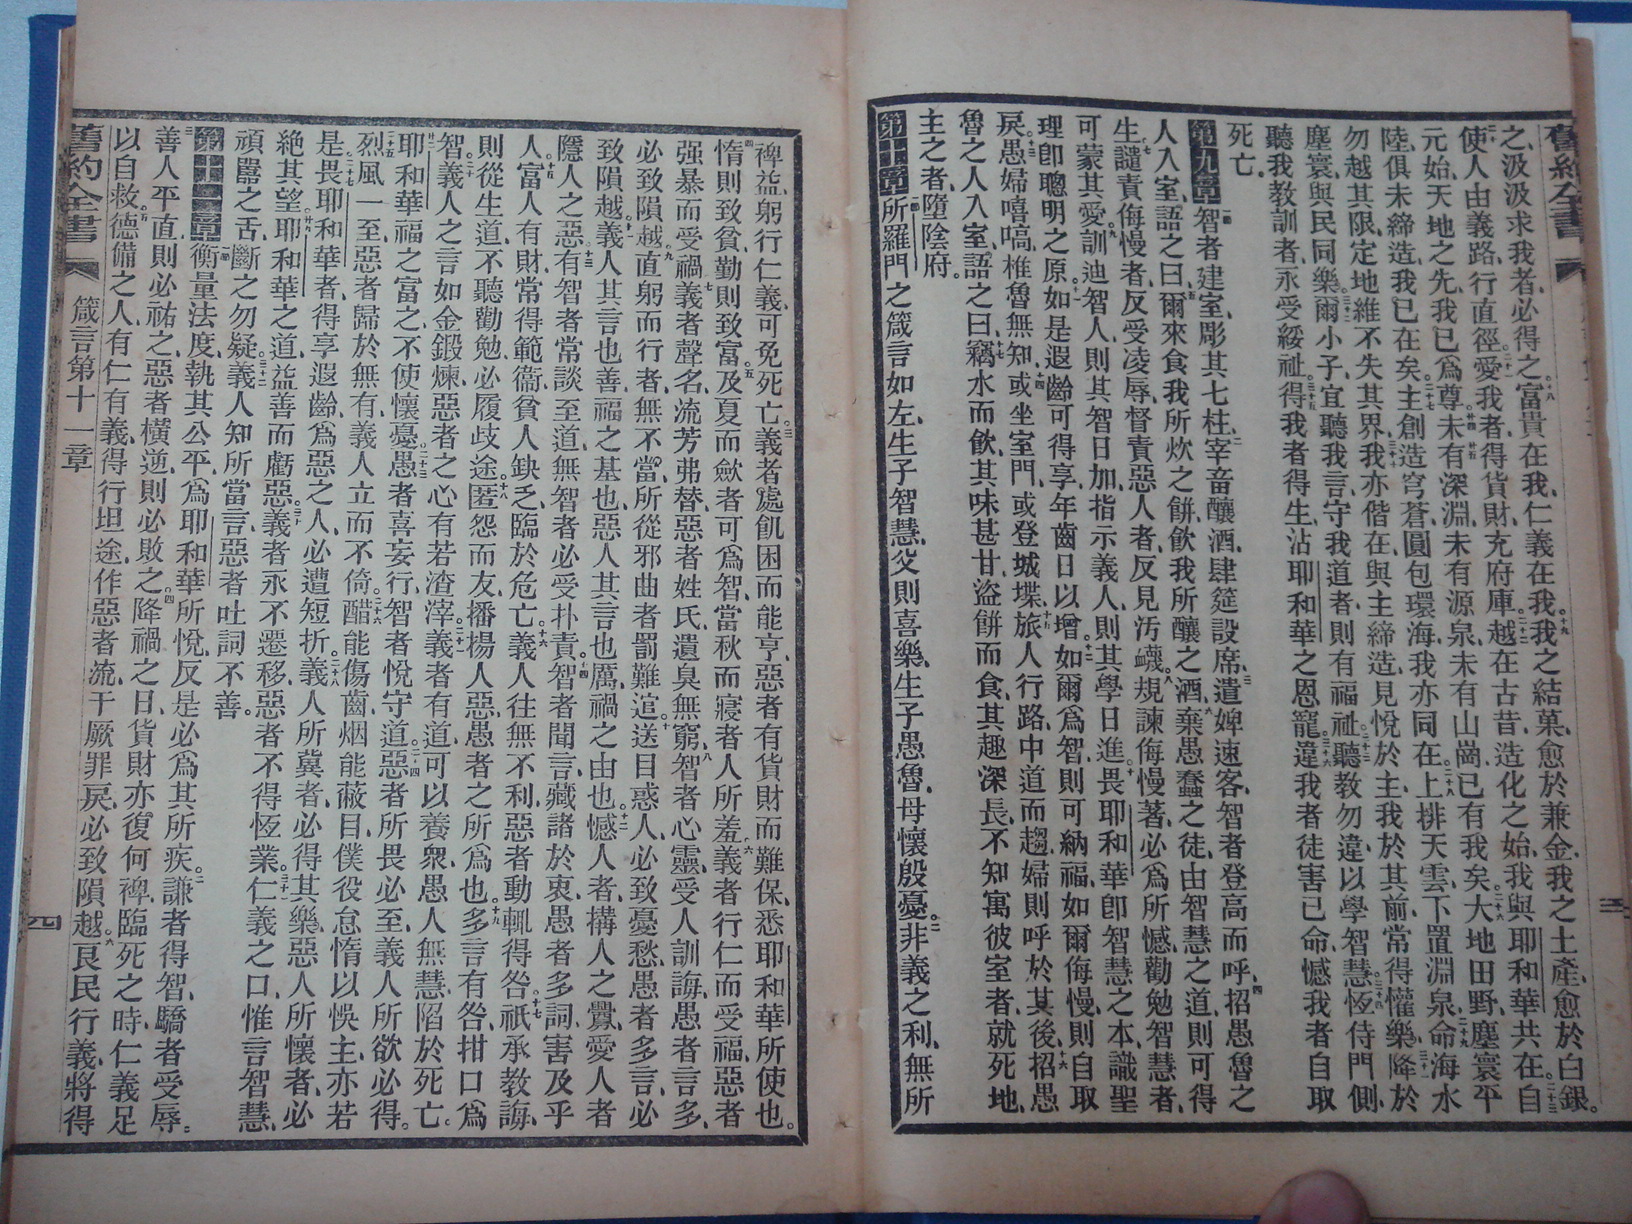 舊約全書
之、汲汲求我者、必得之。十八富貴在我、仁義在我。十九我之結菓、愈於兼金、我之土產、愈於白銀。
二十使人由義路、行直徑。二十一愛我者、得貨財、充府庫。二十二越在古昔、造化之始、我與耶和華共在。二十三自
元始、天地之先、我已爲尊。廿四未有深淵、未有源泉、廿五未有山崗、已有我矣。二十六大地田野、塵寰平
陸、俱未締造、我已在矣。二十七主創造穹蒼、圓包環海、我亦同在。二十八上排天雲、下置淵泉、二十九命海水
勿越其限、定地維不失其界。三十我亦偕在、與主締造、見悅於主、我於其前、常得懽樂。三十一降於
塵寰、與民同樂。三十二爾小子、宜聽我言、守我道者、則有福祉。三十三聽教勿違、以學智慧。三十四恆侍門側、
聽我教訓者、永受綏祉。三十五得我者得生、沾耶和華之恩寵。三十六違我者徒害已命、憾我者自取
死亡。
第九章 一節智者建室、彫其七柱、二宰畜釀酒、肆筵設席、三遣婢速客、智者登高而呼、四招愚魯之
人入室、語之曰、五爾來食我所炊之餅、飲我所釀之酒、六棄愚蠢之徒、由智慧之道、則可得
生。七譴責侮慢者、反受凌辱、督責惡人者、反見汚衊。八規諫侮慢著、必爲所憾、勸勉智慧者、
可蒙其愛。九訓迪智人、則其智日加、指示義人、則其學日進。十畏耶和華、卽智慧之本、識聖
理卽聰明之原。十一如是遐齡可得享、年齒日以增。十二如爾爲智、則可納福、如爾侮慢、則自取
戾。十三愚婦嘻嗃、椎魯無知、十四或坐室門、或登城堞、十五旅人行路、中道而趨、婦則呼於其後、十六招愚
魯之人入室、語之曰、十七竊水而飲、其味甚甘、盜餅而食、其趣深長、不知寓彼室者、就死地、
主之者、墮陰府。
第十章 一節所羅門之箴言如左、生子智慧、父則喜樂、生子愚魯、母懷殷憂。二非義之利、無所
裨益、躬行仁義、可免死亡。三義者處飢困而能亨、惡者有貨財而難保、悉耶和華所使也。
四惰則致貧、勤則致富。五及夏而歛者可爲智、當秋而寢者人所羞。六義者行仁而受福、惡者
强暴而受禍。七義者聲名、流芳弗替、惡者姓氏、遺臭無窮。八智者心靈受人訓誨、愚者言多、
必致隕越。九直躬而行者、無不當、所從邪曲者罰難逭。十送目惑人、必致憂愁、愚者多言、必
致隕越。十一義人其言也善、福之基也、惡人其言也厲、禍之由也。十二憾人者、構人之釁、愛人者
隱人之惡。十三有智者常談至道、無智者必受扑責。十四智者聞言、藏諸於衷、愚者多詞、害及乎
人。十五富人有財、常得範衞、貧人缺乏、臨於危亡。十六義人往無不利、惡者動輒得咎。十七祇承教誨、
則從生道、不聽勸勉、必履歧途。十八匿怨而友、播揚人惡、愚者之所爲也。十九多言有咎、拑口爲
智。二十義人之言如金鍛煉、惡者之心有若渣滓。二十一義者有道、可以養衆、愚人無慧、陷於死亡。
廿二耶和華福之、富之、不使懷憂。二十三愚者喜妄行、智者悅守道。二十四惡者所畏必至、義人所欲必得。
二十五烈風一至、惡者歸於無有、義人立而不倚。二十六醋能傷齒、烟能蔽目、僕役怠惰、以悞主、亦若
是。二十七畏耶和華者、得享遐齡、爲惡之人、必遭短折。二十八義人所冀者、必得其樂、惡人所懷者、必
絶其望。廿九耶和華之道、益善而虧惡。三十義者永不遷移、惡者不得恆業。三十一仁義之口、惟言智慧、
頑嚚之舌、斷之勿疑。三十二義人知所當言、惡者吐詞不善。
第十一章 一節衡量法度、執其公平、爲耶和華所悅、反是必爲其所疾。二謙者得智、驕者受辱。
三善人平直、則必祐之、惡者橫逆、則必敗之。四降禍之日、貨財亦復何裨、臨死之時、仁義足
以自救。五德備之人、有仁有義、得行坦途、作惡者流、干厥罪戾、必致隕越。六良民行義、將得
舊約全書 箴言第十一章 四